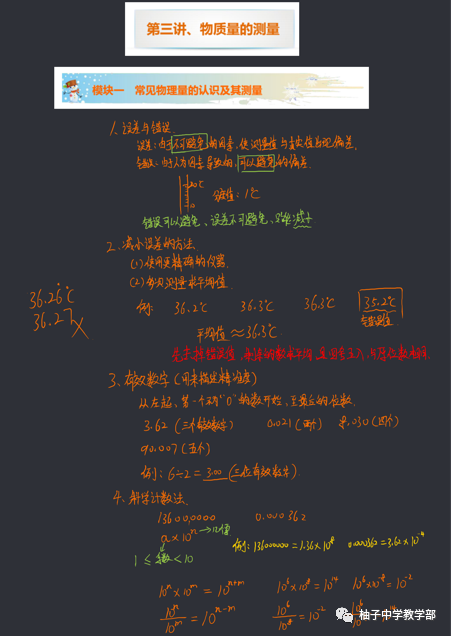 第三讲、物质量的测量
模块一 常见物理量的认识及其测量
1、误差与错误
误差:由于不可避免的因素,使测量值与真实值出现偏差.
错误:由于人为因素导致的,可以避免的偏差.
20℃
0
分度值:1℃
错误可以避免、误差不可避免、只能减小
2、减小误差的方法
(1)使用更精确的仪器
(2)多次测量求平均值
36.26℃
36.27
例: 36.2℃ 36.3℃ 36.3℃ 35.2℃
错误值
平均值≈36.3℃
3、有效数字(用来描述精准度)
从左起,第一个不为“0”的数开始,至最后的位数.
3.62(三个有效数字) 0.021(两个)
90.007(五个)
例:6÷2=3.00(三位有效数字).
4、科学计数法
136000000 0.000362
a×10ⁿ
1≤ <10
例:136000000=1.36×10⁸ 0.000362=3.62×10⁻⁴
10ⁿ×10ᵐ=10ⁿ⁺ᵐ 10⁶×10⁸=10¹⁴ 10⁶×10⁻⁸=10⁻²
10ⁿ/10ᵐ=10ⁿ⁻ᵐ 10⁶/10⁸=10⁻²
柚子中学教学部